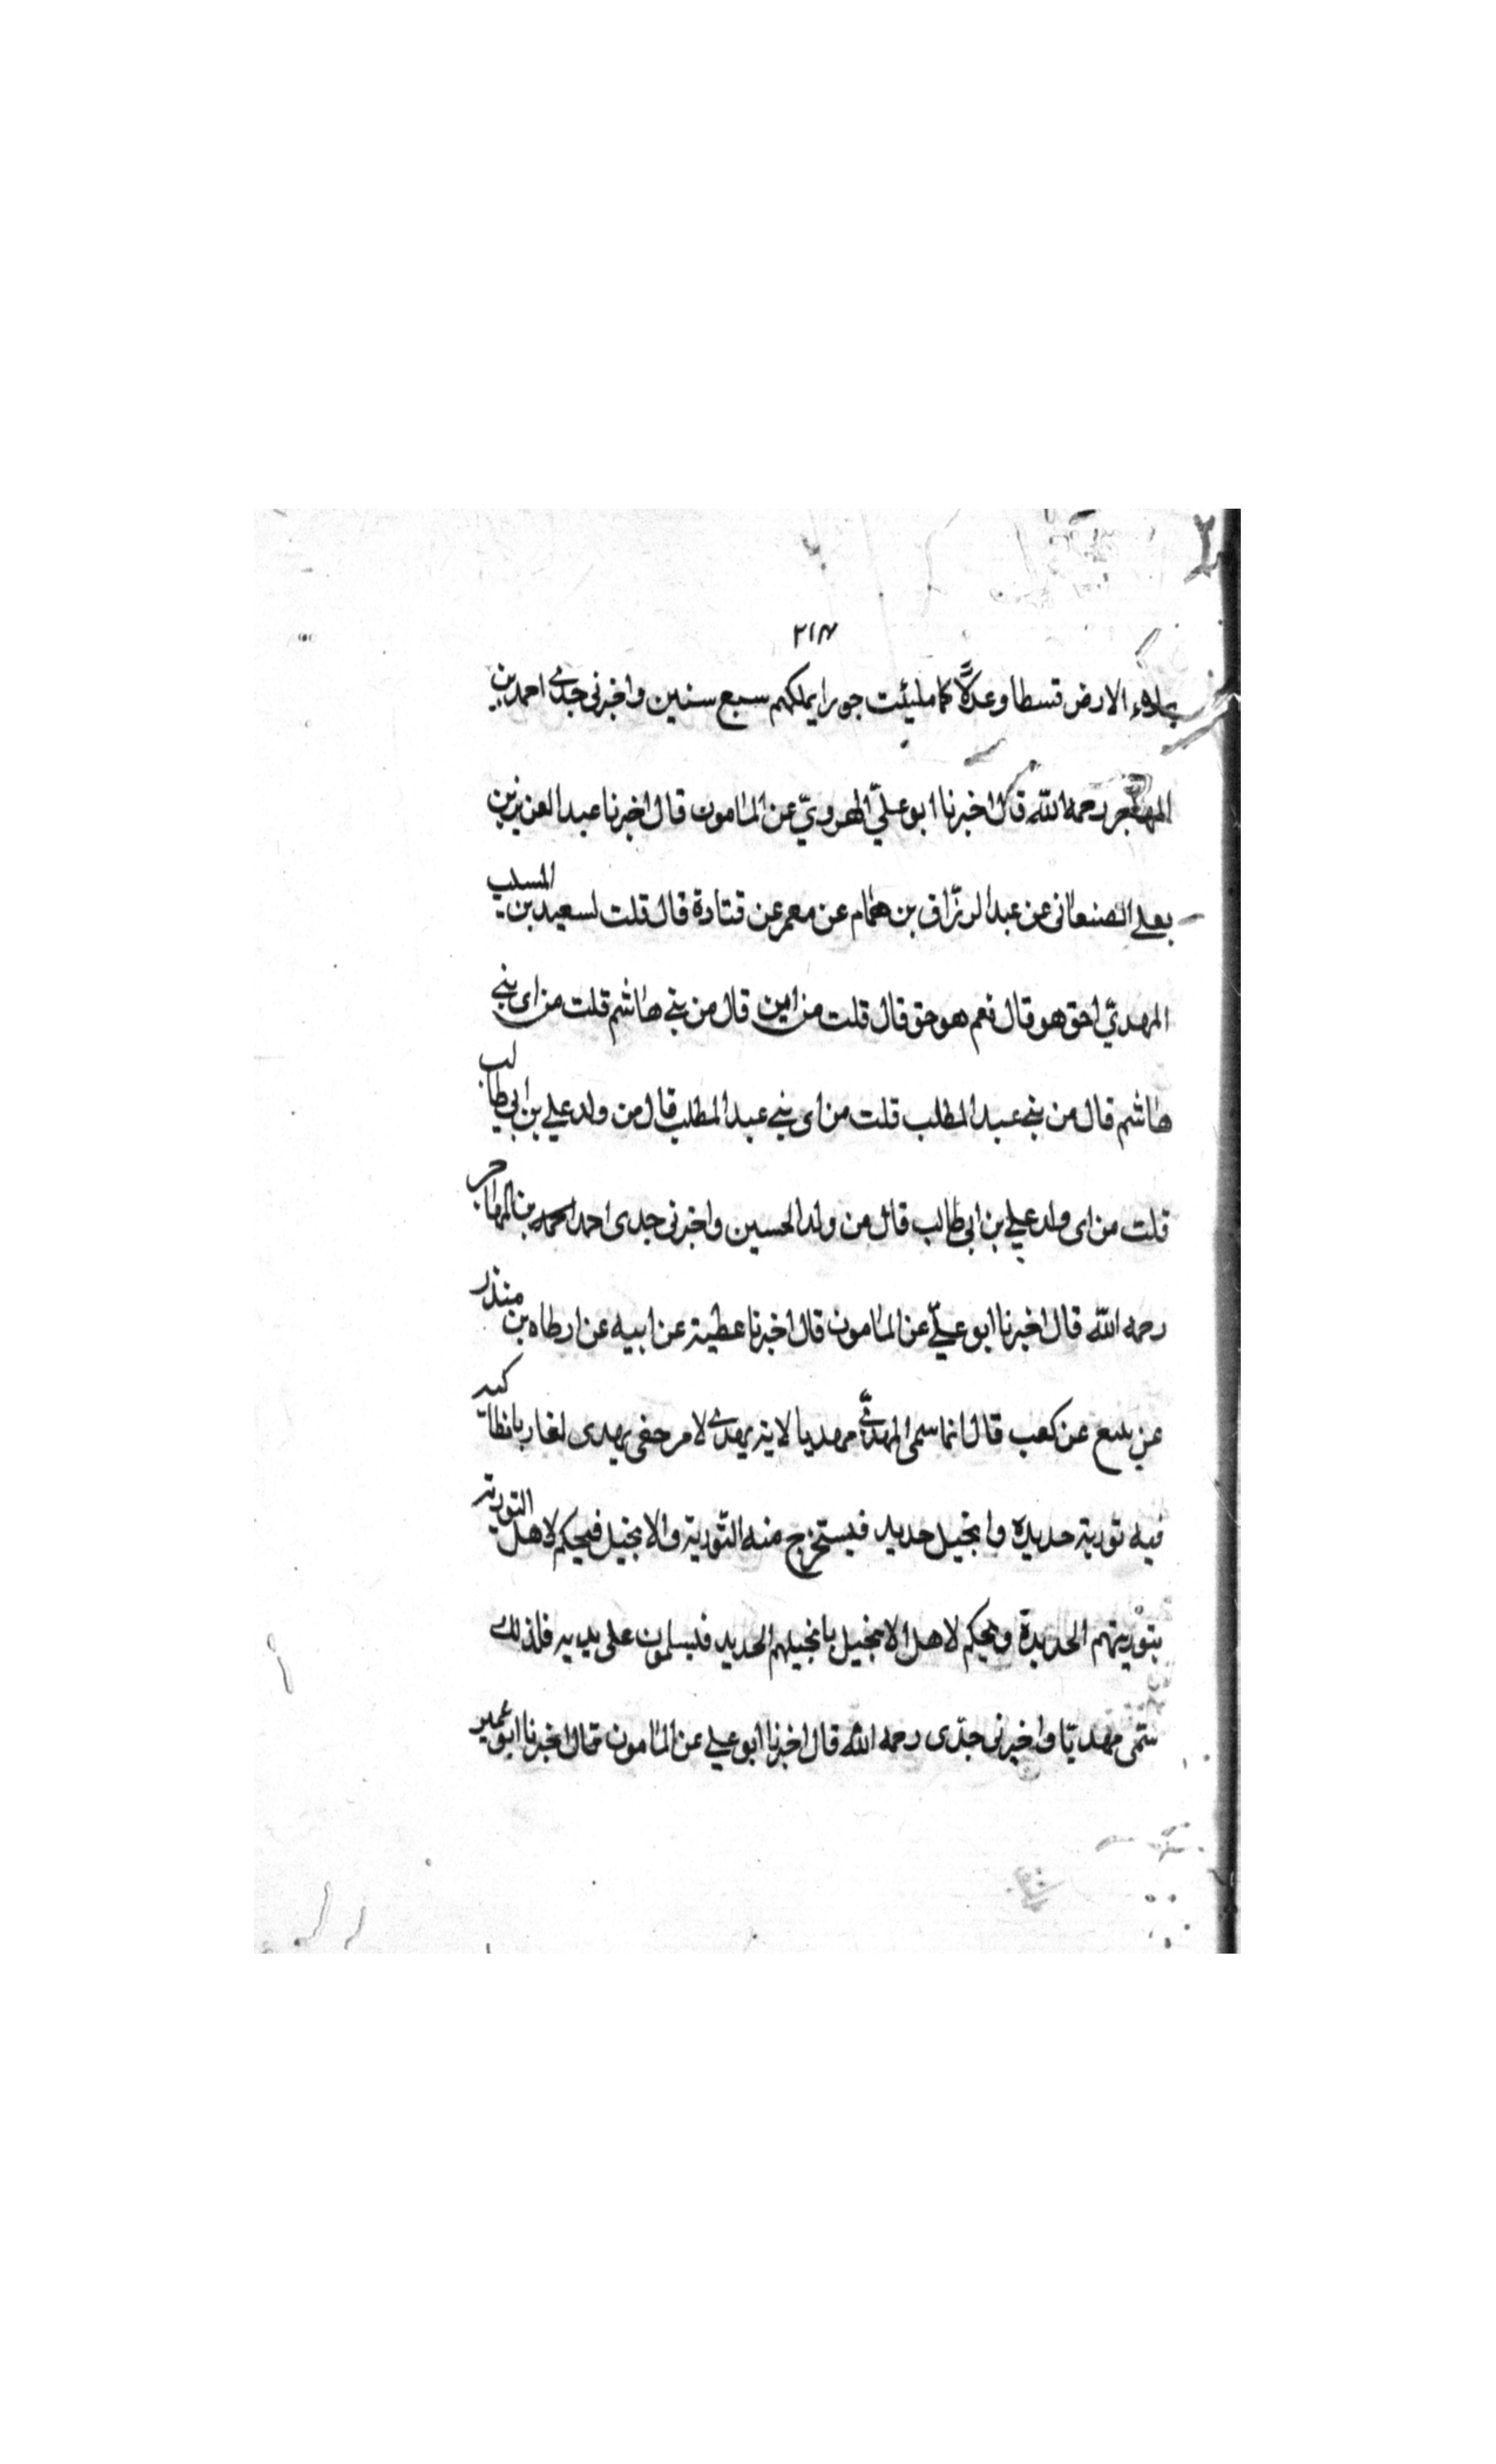 ٢١٣
يملاء الارض قسطا وعدلًا كما مليئت جورا يملكهم سبع سنين واخبرنى جدى احمد بن
المهاجر رحمه الله قال اخبرنا ابو علىّ الهروىّ عن المامون قال اخبرنا عبد العزيز بن
يعلى الصنعانى عن عبد الرزّاق بن همام عن معمر عن قتادة قال قلت لسعيد بن المسيب
المهدىّ احق هو قال نعم هو حق قال قلت من اين قال من بنى هاشم قلت من اى بنى
هاشم قال من بنى عبد المطلب قلت من اى بنى عبد المطلب قال من ولد على بن ابى طالب
قلت من اى ولد على بن ابى طالب قال من ولد الحسين واخبرنى جدى احمد بن المهاجر
رحمه الله قال اخبرنا ابو علىّ عن المامون قال اخبرنا عطية عن ابيه عن ارطاه بن منذر
عن عن كعب قال انما سمى المهدىّ مهديا لانه يهدى لامر خفى يهدى لغار بانطاكيه
فيه تورية حديدة وانجيل حديد فيستخرج منه التّورية والانجيل فيحكم لاهل التورية
بتوريتهم الحديدة ويحكم لاهل الانجيل بانجيلهم الحديد فيسلمون على يديه فلذلك
سمّى مهديّا واخبرنى جدّى رحمه الله قال اخبرنا ابو على عن المامون قال اخبرنا ابو عمير